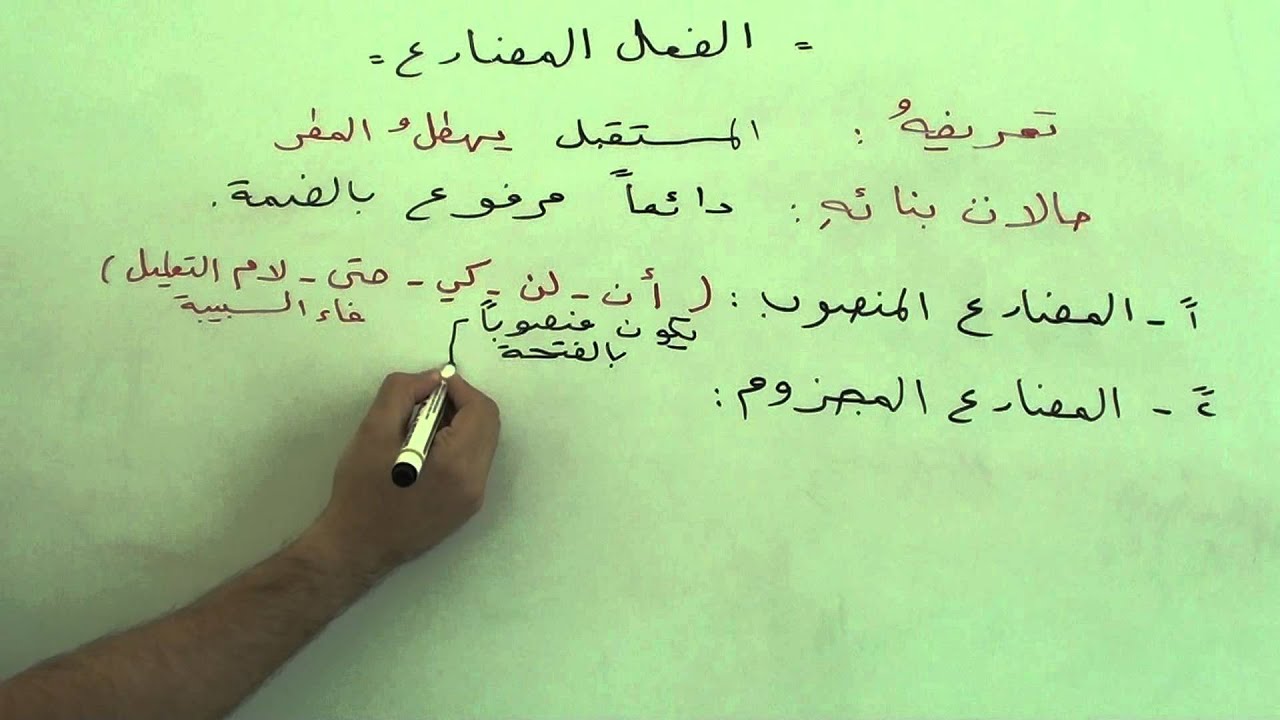 = الفعل المضارع =
تعريفهُ : المستقبل يهطلُ المطر
حالات بنائهِ : دائماً مرفوع بالضمة.
أً - المضارع المنصوب : ( أن - لن - كي - حتى - لام التعليل )
فاء السببية
يكون منصوباً
بالفتحة
المضارع المجزوم :